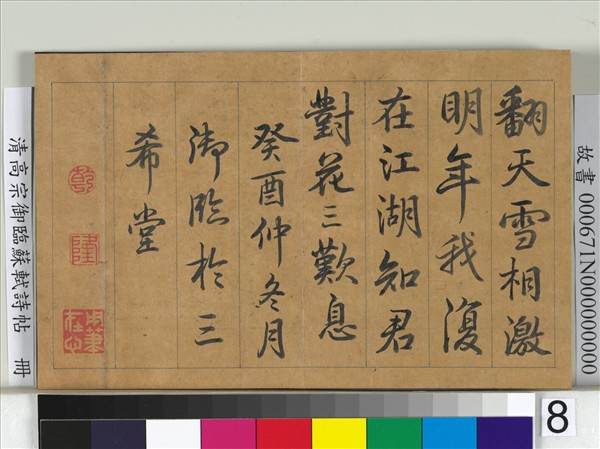 翻天雪相激
明年我復
在江湖知君
對花三歎息
癸酉仲冬月
御臨於三
希堂
乾
隆
用筆在心
故書 000671N000000000
清高宗御臨蘇軾詩帖 冊
8